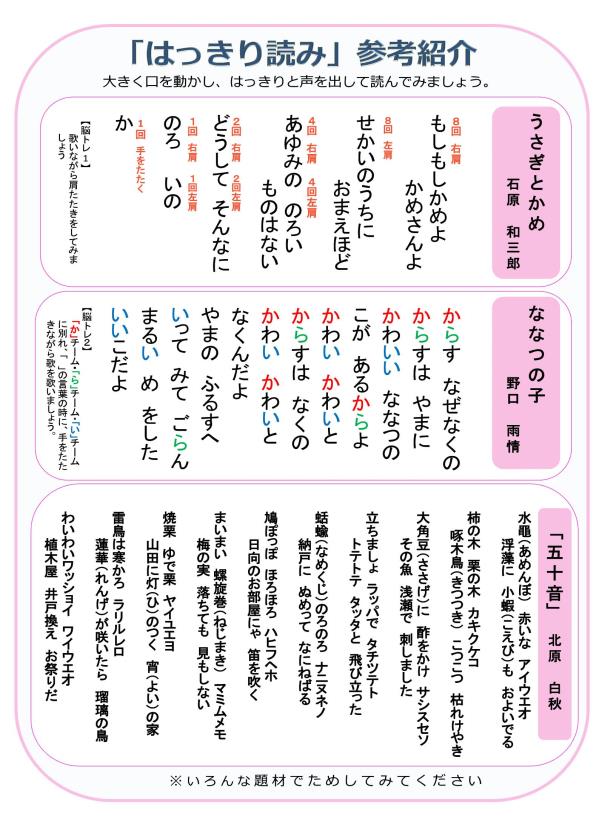 「はっきり読み」参考紹介
大きく口を動かし、はっきりと声を出して読んでみましょう。
うさぎとかめ
石原　和三郎
8回 右肩
もしもしかめよ
かめさんよ
8回 左肩
せかいのうちに
おまえほど
4回 右肩　4回左肩
あゆみの のろい
ものはない
2回 右肩　2回左肩
どうして そんなに
1回 右肩　1回左肩
のろ　いの
1回 手をたたく
か
【脳トレ１】
歌いながら肩たたきをしてみま
しょう
ななつの子
野口　雨情
からす なぜなくの
からすは やまに
かわいい ななつの
こが あるからよ
かわい かわいと
からすは なくの
かわい かわいと
なくんだよ
やまの ふるすへ
いって みて ごらん
まるい め をした
いいこだよ
【脳トレ2】
「か」チーム・「ら」チーム・「い」チーム
に別れ、「　」の言葉の時に、手をたた
きながら歌を歌いましょう。
「五十音」　北原　白秋
水黽(あめんぼ) 赤いな アイウエオ
浮藻に 小蝦(こえび)も およいでる
柿の木 栗の木 カキクケコ
啄木鳥(きつつき) こつこつ 枯れけやき
大角豆(ささげ)に 酢をかけ サシスセソ
その魚 浅瀬で 刺しました
立ちましょ ラッパで タチツテト
トテトテ タッタと 飛び立った
蛞蝓(なめくじ)のろのろ ナニヌネノ
納戸に ぬめって なにねばる
鳩ぽっぽ ほろほろ ハヒフヘホ
日向のお部屋にゃ 笛を吹く
まいまい 螺旋巻(ねじまき) マミムメモ
梅の実 落ちても 見もしない
焼栗 ゆで栗 ヤイユエヨ
山田に灯(ひ)のつく 宵(よい)の家
雷鳥は寒かろ ラリルレロ
蓮華(れんげ)が咲いたら 瑠璃の鳥
わいわいワッショイ ワイウエオ
植木屋 井戸換え お祭りだ
※いろんな題材でためしてみてください